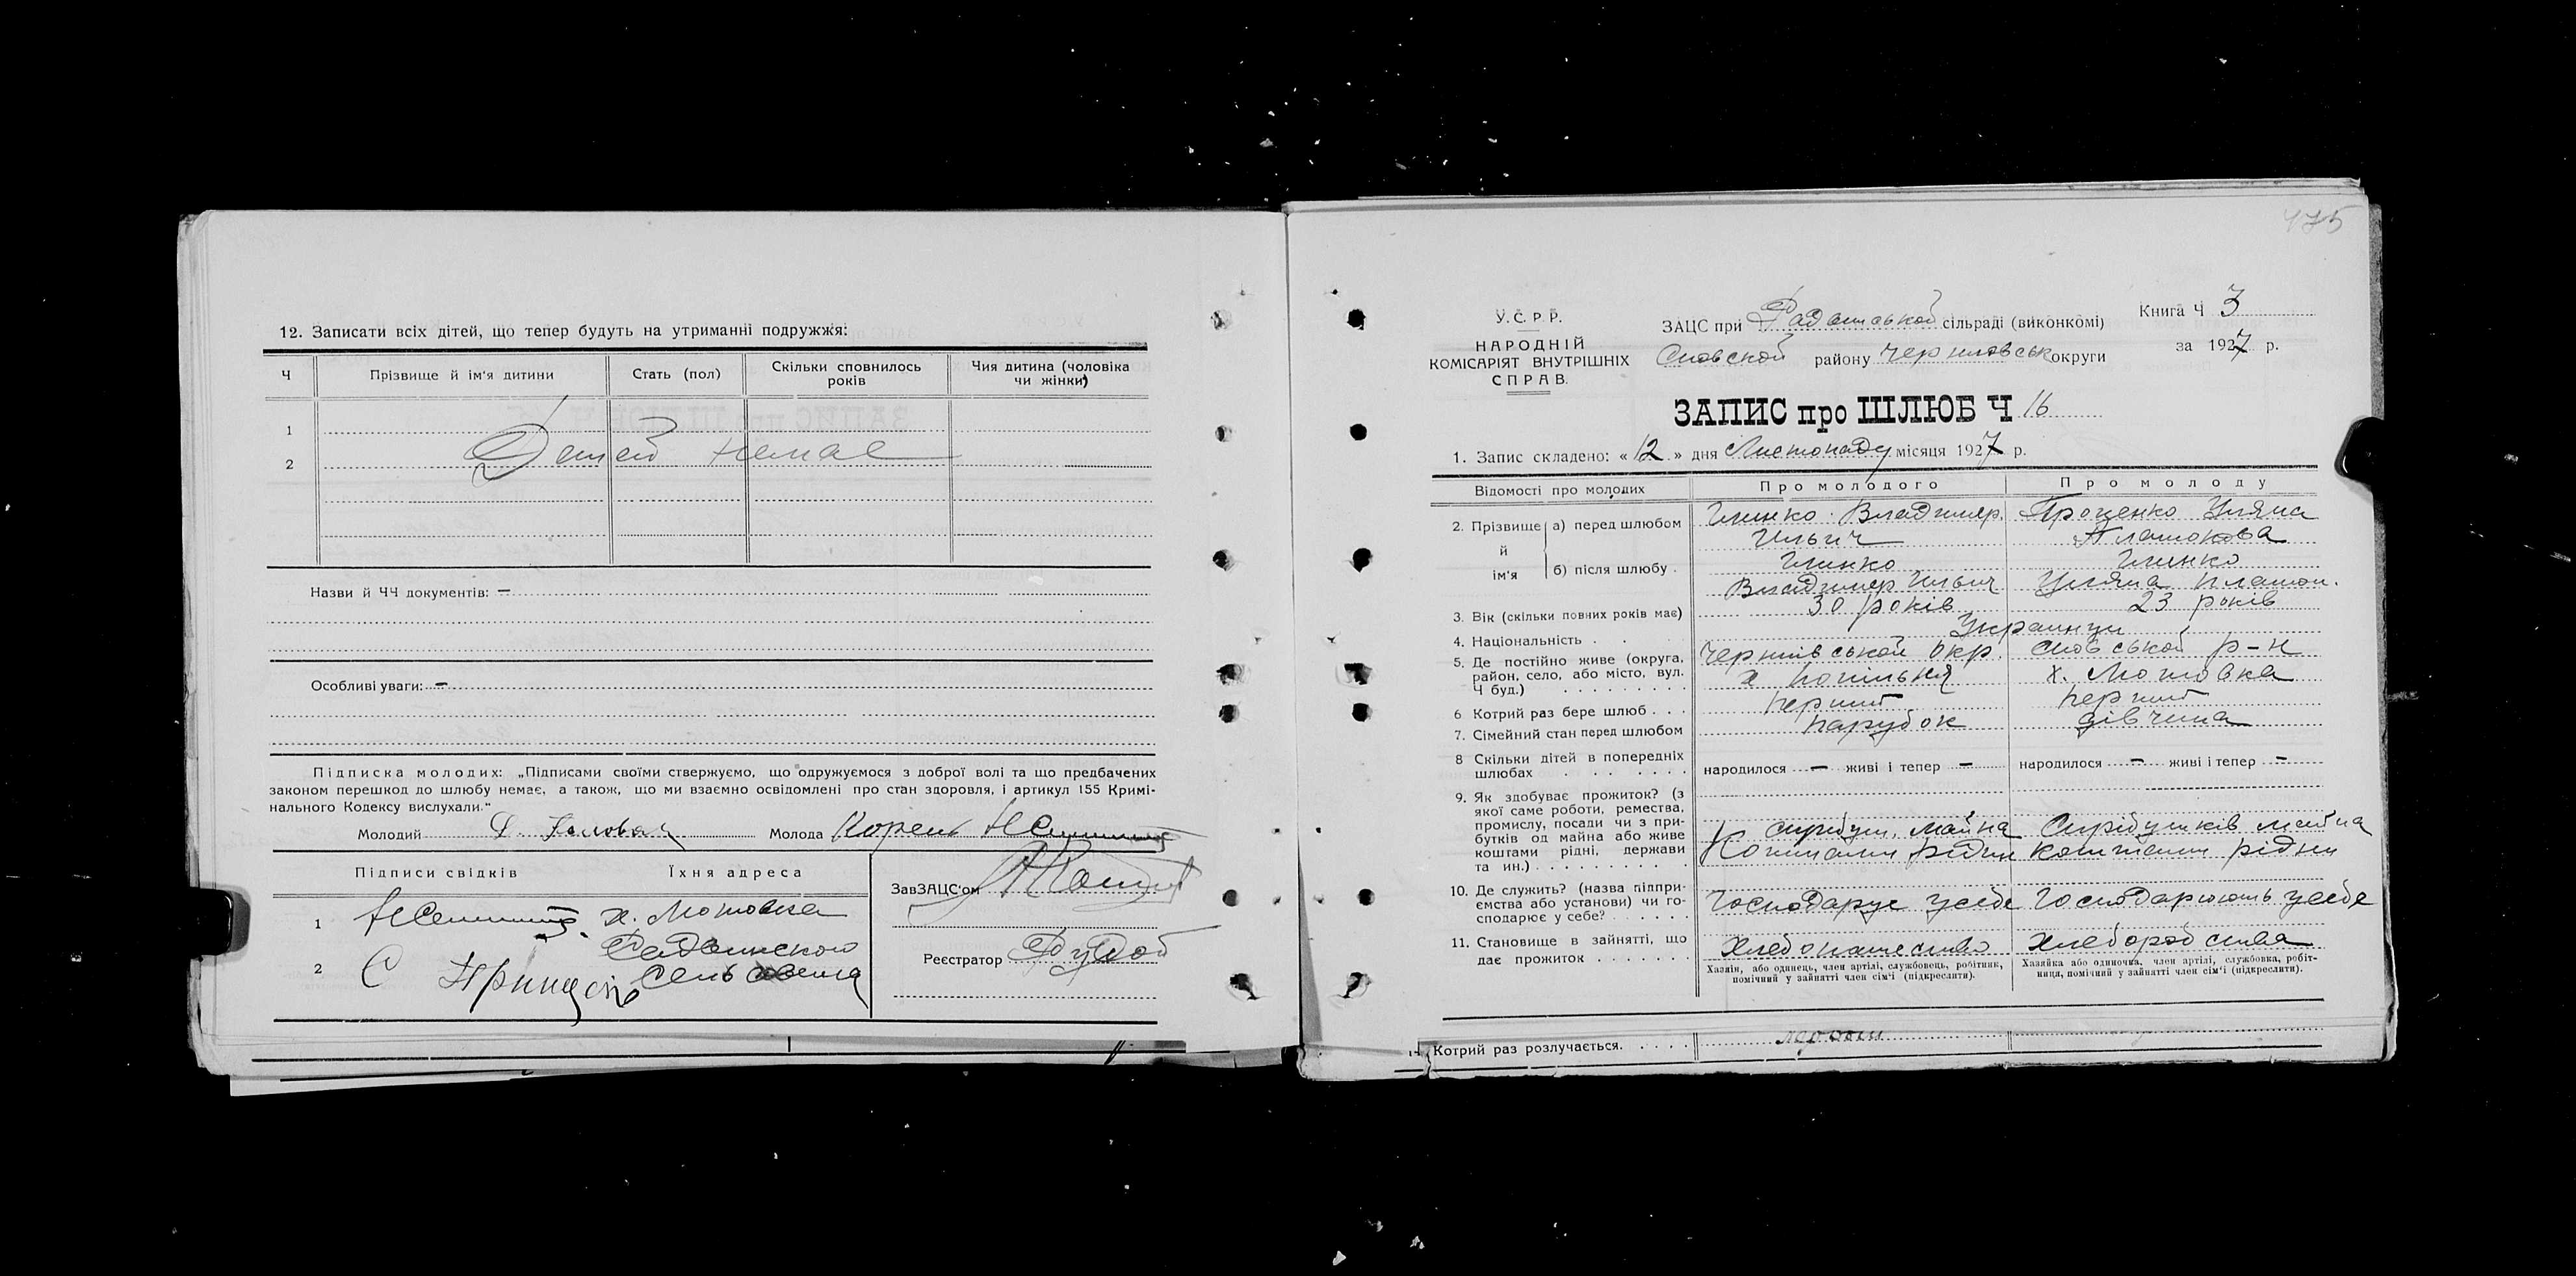 12. Записати всіх дітей, що тепер будуть на утриманні подружжя:
Ч Прізвище й ім'я дитини Стать (пол) Скільки сповнилось років Чия дитина (чоловіка чи жінки)
1
2 Детей немае
Назви й ЧЧ документів: —
Особливі уваги: —
Підписка молодих: „Підписами своїми ствержуємо, що одружуємося з доброї волі та що предбачених
законом перешкод до шлюбу немає, а також, що ми взаємно освідомлені про стан здоровля, і артикул 155 Кримі-
нального Кодексу вислухали."
Молодий Молода Корень
Підписи свідків Їхня адреса
1 х. Мотовка
2 С
ЗавЗАЦС'ом
Реєстратор
475
У.С.Р.Р.
НАРОДНІЙ
КОМІСАРІЯТ ВНУТРІШНІХ
СПРАВ.
ЗАЦС при сільраді (виконкомі)
Сновской району округи
Книга Ч 3
за 1927 р.
ЗАПИС про ШЛЮБ Ч 16
1. Запис складено: «12» дня Листопаду місяця 1927 р.
Відомості про молодих Про молодого Про молоду
2. Прізвище й ім'я а) перед шлюбом Владимер. Проценко Уляна
Ильич Платонова
б) після шлюбу
Владимер Ильич Уляна Платон.
3. Вік (скільки повних років має) 30 років 23 років
4. Національність . . Украинци
5. Де постійно живе (округа, район, село, або місто, вул. Ч буд.) Чернигівськой окр. Сновськой р-н
х х. Мотовка
6 Котрий раз бере шлюб . . . перший перший
7. Сімейний стан перед шлюбом парубок дівчина
8 Скільки дітей в попередніх шлюбах народилося — живі і тепер — народилося — живі і тепер —
9. Як здобуває прожиток? (з якої саме роботи, ремества, промислу, посади чи з прибутків од майна або живе коштами рідні, держави та ин.)
майна майна
Коштами рідни коштами рідни
10. Де служить? (назва підприємства або установи) чи господарює у себе? Господарує усебе Господарюють усебе
11. Становище в зайнятті, що дає прожиток Хлебопашество
Хазяїн, або одинець, член артілі, службовець, робітник, помічний у зайнятті член сім'ї (підкреслити).
Хазяйка або одиночка, член артілі, службовка, робітниця, помічний у зайнятті член сім'ї (підкреслити).
Котрий раз розлучається.